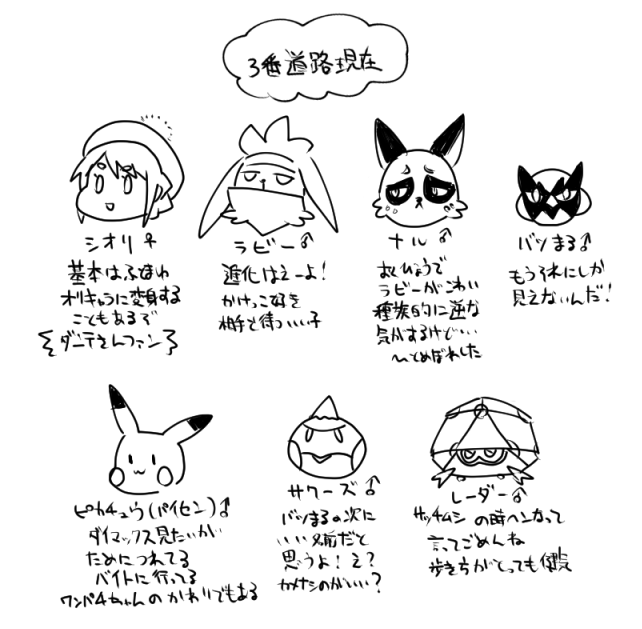 3番道路現在
シオリ♀
基本はふわふわ
オリキャラに変身する
こともあるぞ
ダンデさんファン
ラビー♂
進化はえーよ!
かけっこなるを
相手を待ついい子
ナル♂
おくびょうで
ラビーがこわい
種族的に逆な
気がするけど…
ひとめぼれした
バツまる♂
もうそれにしか
見えないんだ!
ピカチュウ(パイセン)♂
ダイマックス見たいが
ためにつれてる
バイトに行ってる
ワンパチちゃんのかわりでもある
サワーズ♂
バツまるの次に
いい名前だと
思うよ!え?
カメナシのがいい?
レーダー♂
サッチムシの時へンなって
言ってごめんね
歩き方がとっても健気